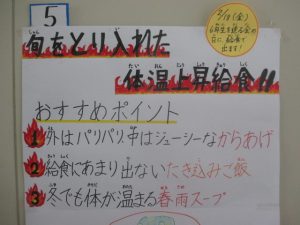 5
2/18(金)
6年生を送る会の
日に、給食で
出ます!
旬をとり入れた
体温上昇給食!!
おすすめポイント
1 外はパリパリ、中はジューシーなからあげ
2 給食にあまり出ないたき込みご飯
3 冬でも体が温まる春雨スープ